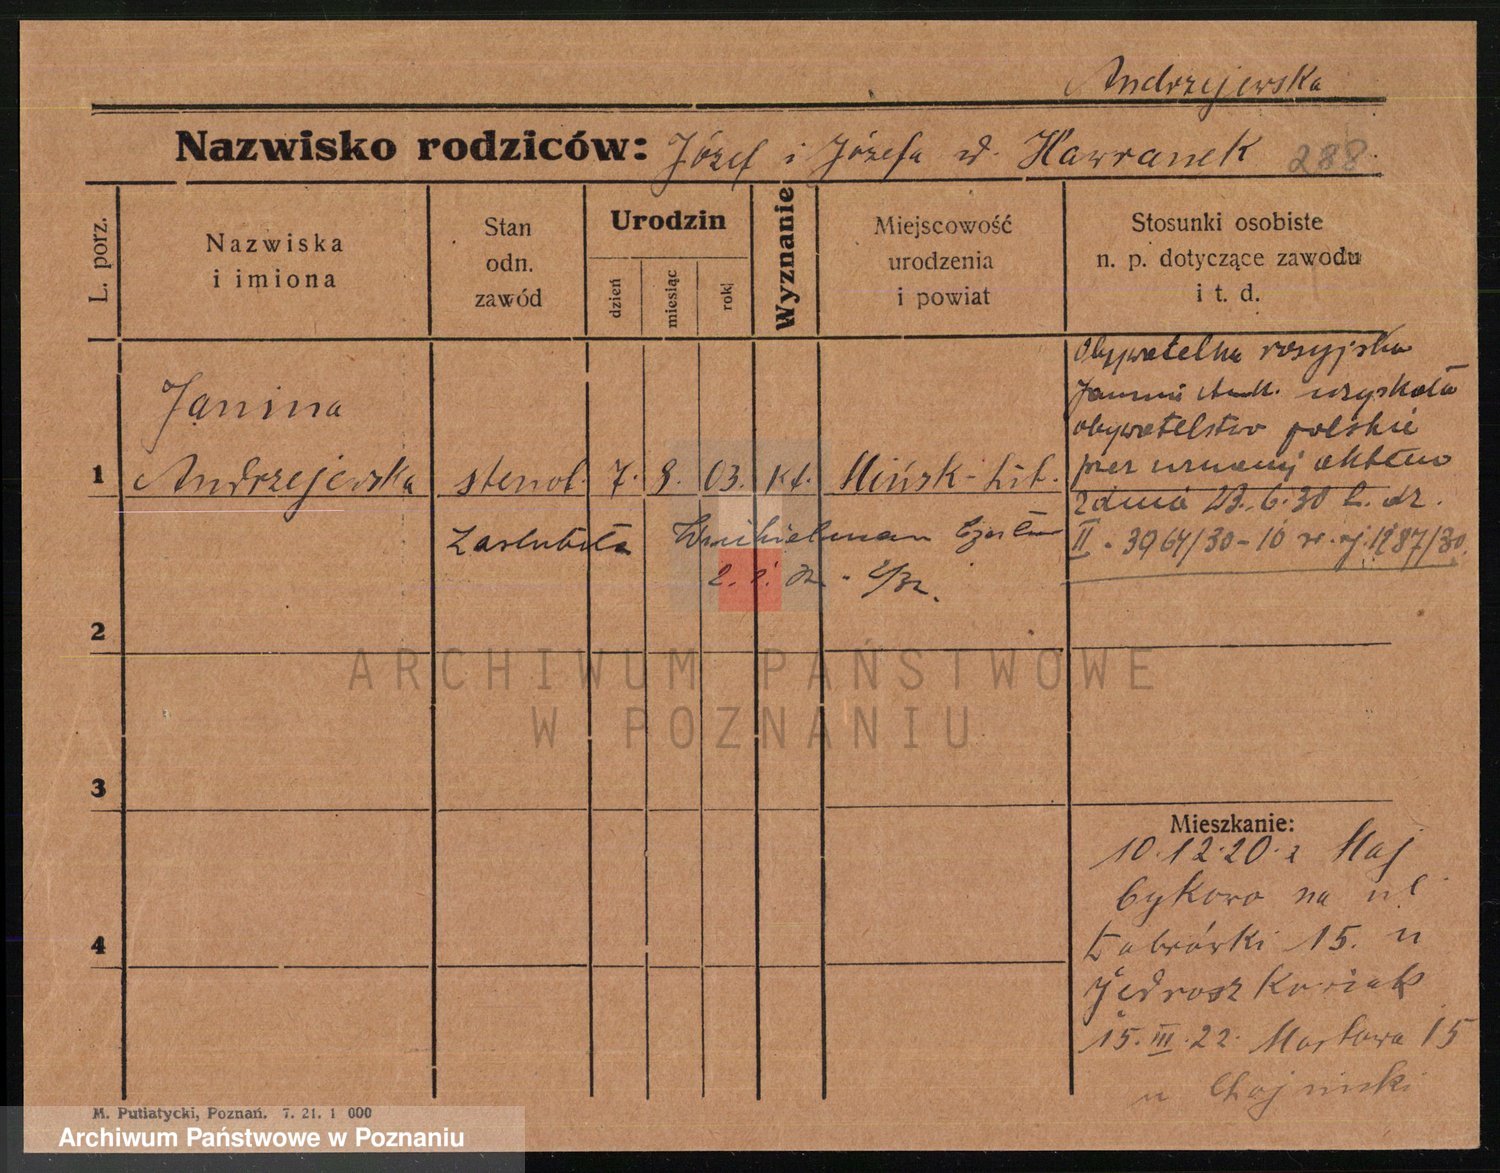 Andrzejewska
Nazwisko rodziców: Józef i Józefa d. Hawranek 288.
L. porz.
Nazwiska
i imiona
Stan
odn.
zawód
Urodzin
dzień
miesiąc
rok
Wyznanie
Miejscowość
urodzenia
i powiat
Stosunki osobiste
n. p. dotyczące zawodu
i t. d.
Obywatelka rosyjska
Janina And. uzyskała
obywatelstwo polskie
przez aktem
z dnia 23.6.30 L. dz.
II. 3964/30-10 1987/30
Janina
1 Andrzejewska stenot. 7. 8. 03. kt. Mińsk-Lit.
Zaślubiła
2
3
4
Mieszkanie:
10.12.20. z Maj
na ul
Dąbrówki 15. u
15.III.22. Mostowa 15
u Chojniski
M. Putiatycki, Poznań. 7. 21. 1 000
ARCHIWUM PAŃSTWOWE
W POZNANIU
Archiwum Państwowe w Poznaniu